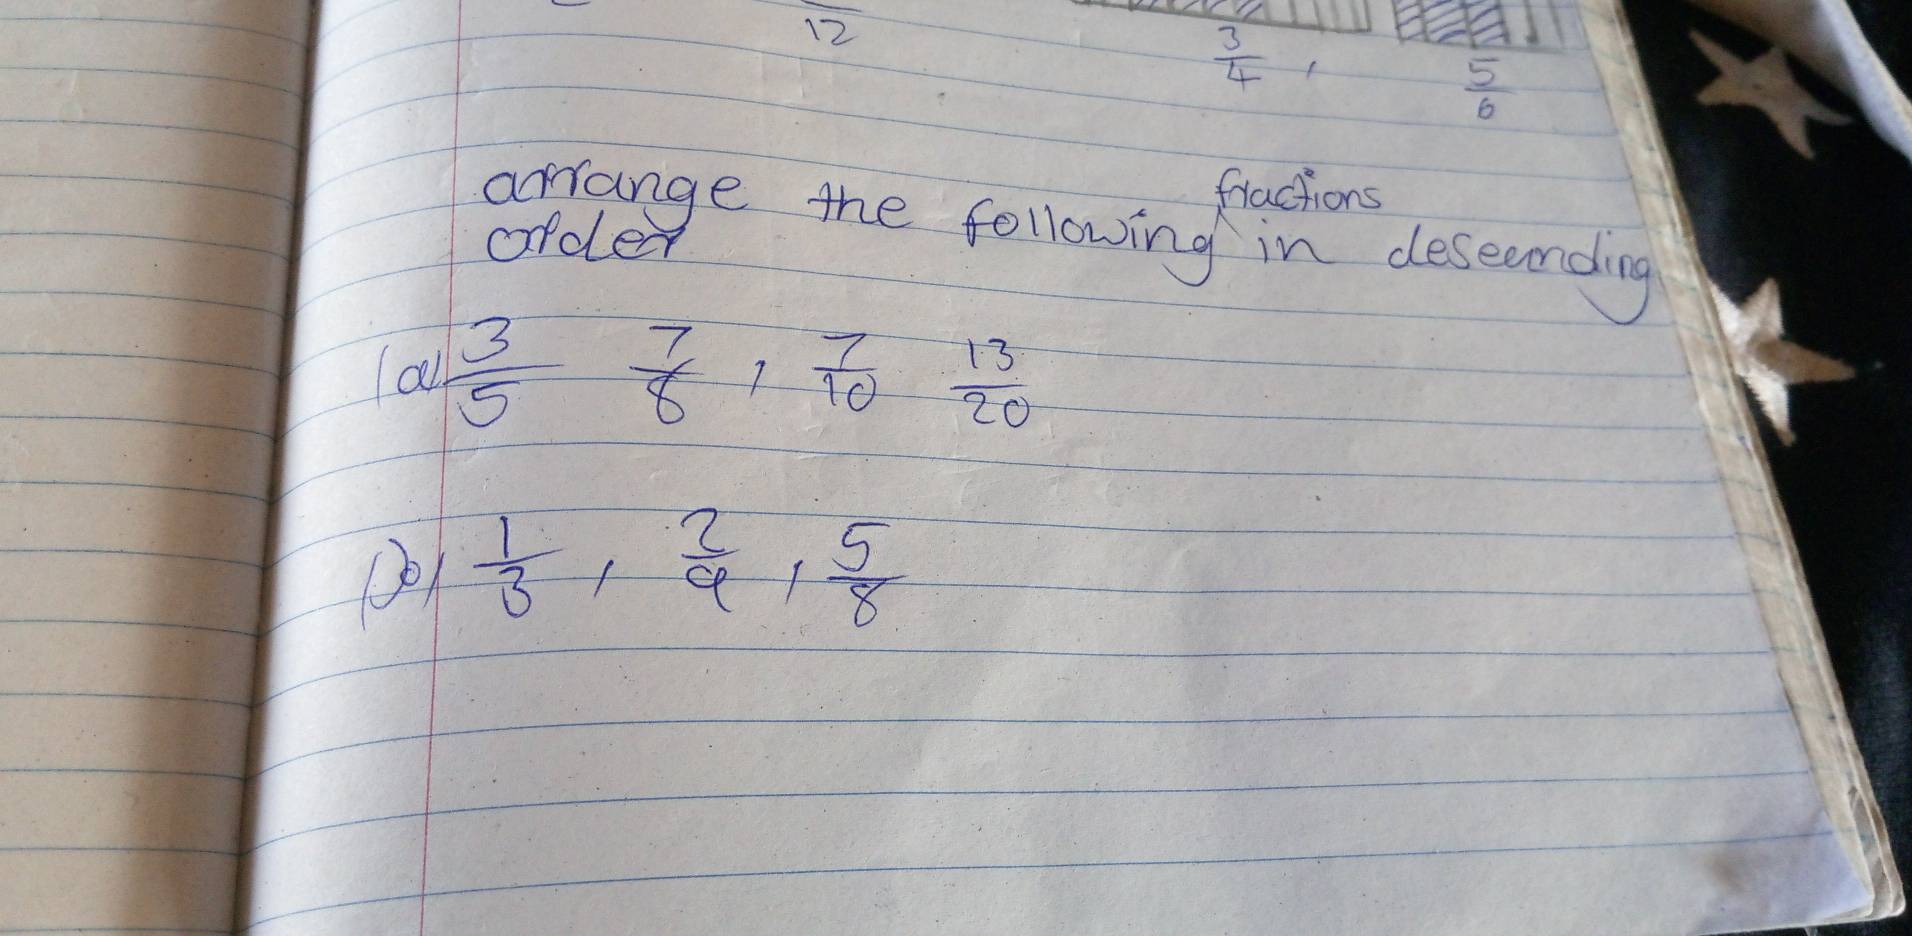 12
3/4 , 5/6
arrange the following fractions in deseending
order
(a) 3/5 7/8 , 7/10 13/20
(b) 1/3 , 2/9 , 5/8